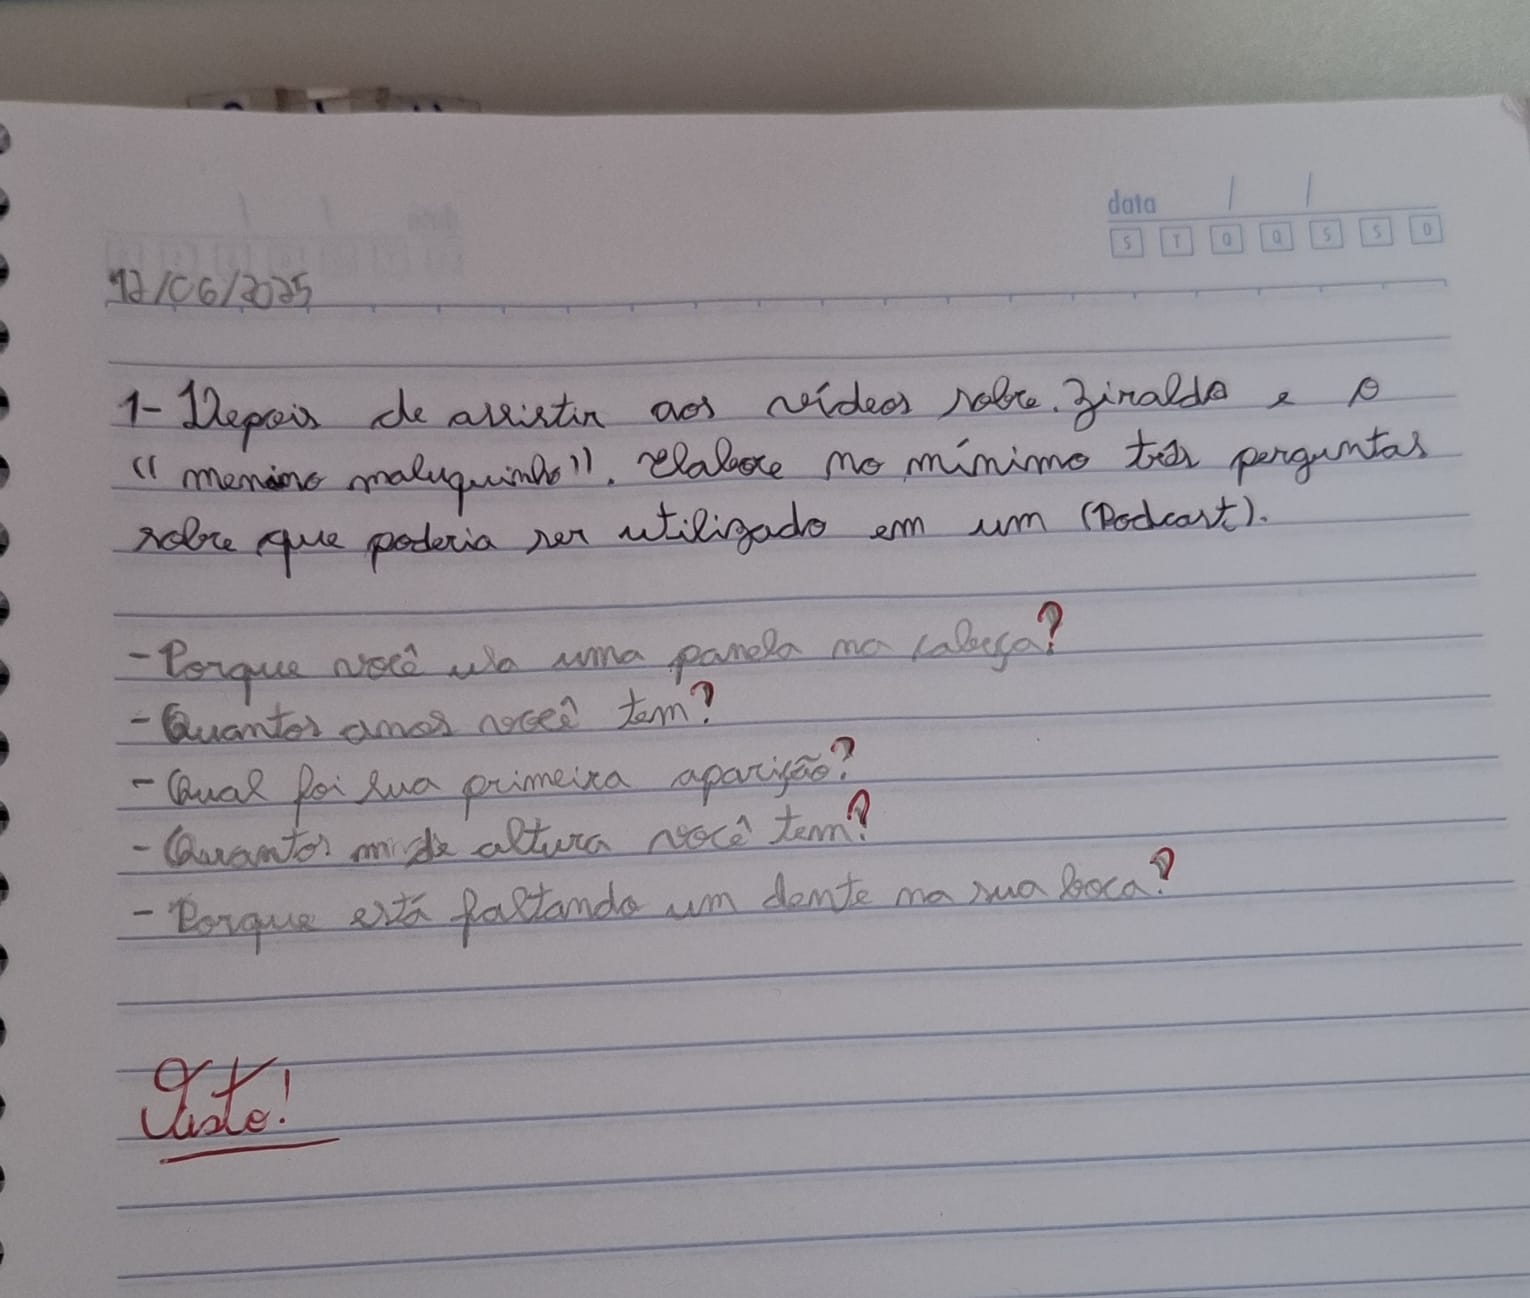 data / /
S T Q Q S S D
12/06/2025
1- Depois de assistir aos vídeos sobre. Ziraldo e o
"menino maluquinho". elabore no mínimo três perguntas
sobre que poderia ser utilizado em um (Podcast).
- Porque você usa uma panela na cabeça?
- Quantos anos você tem?
- Qual foi sua primeira aparição?
- Quantos de altura você tem?
- Porque está faltando um dente na sua boca?
Visto!